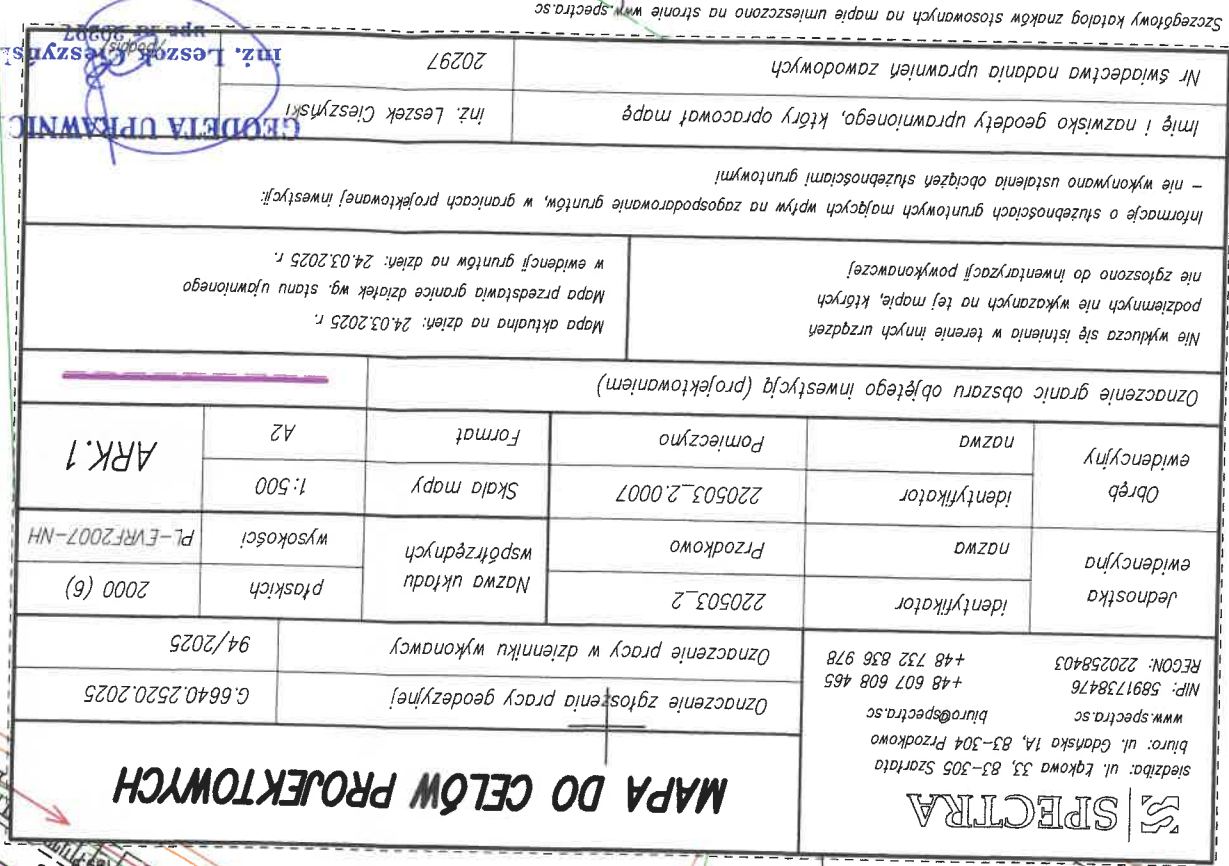 SPECTRA
siedziba: ul. Łąkowa 33, 83-305 Szarłata
biuro: ul. Gdańska 1A, 83-304 Przodkowo
www.spectra.sc biuro@spectra.sc
NIP: 5891738476 +48 607 608 465
REGON: 220258403 +48 732 836 978
MAPA DO CELÓW PROJEKTOWYCH
Oznaczenie zgłoszenia pracy geodezyjnej G.6640.2520.2025
Oznaczenie pracy w dzienniku wykonawcy 94/2025
Jednostka ewidencyjna
identyfikator 220503_2
nazwa Przodkowo
Nazwa układu współrzędnych
płaskich 2000 (6)
wysokości PL-EVRF2007-NH
Obręb ewidencyjny
identyfikator 220503_2.0007
nazwa Pomieczyno
Skala mapy 1:500
Format A2
ARK.1
Oznaczenie granic obszaru objętego inwestycją (projektowaniem)
Nie wyklucza się istnienia w terenie innych urządzeń
podziemnych nie wykazanych na tej mapie, których
nie zgłoszono do inwentaryzacji powykonawczej
Mapa aktualna na dzień: 24.03.2025 r.
Mapa przedstawia granice działek wg. stanu ujawnionego
w ewidencji gruntów na dzień: 24.03.2025 r.
Informacje o służebnościach gruntowych mających wpływ na zagospodarowanie gruntów, w granicach projektowanej inwestycji:
- nie wykonywano ustalenia obciążeń służebnościami gruntowymi
Imię i nazwisko geodety uprawnionego, który opracował mapę inż. Leszek Cieszyński
Nr świadectwa nadania uprawnień zawodowych 20297
GEODETA UPRAWNIO
inż. Leszek Cieszyńsk
upr. nr 20297
(podpis)
Szczegółowy katalog znaków stosowanych na mapie umieszczono na stronie www.spectra.sc